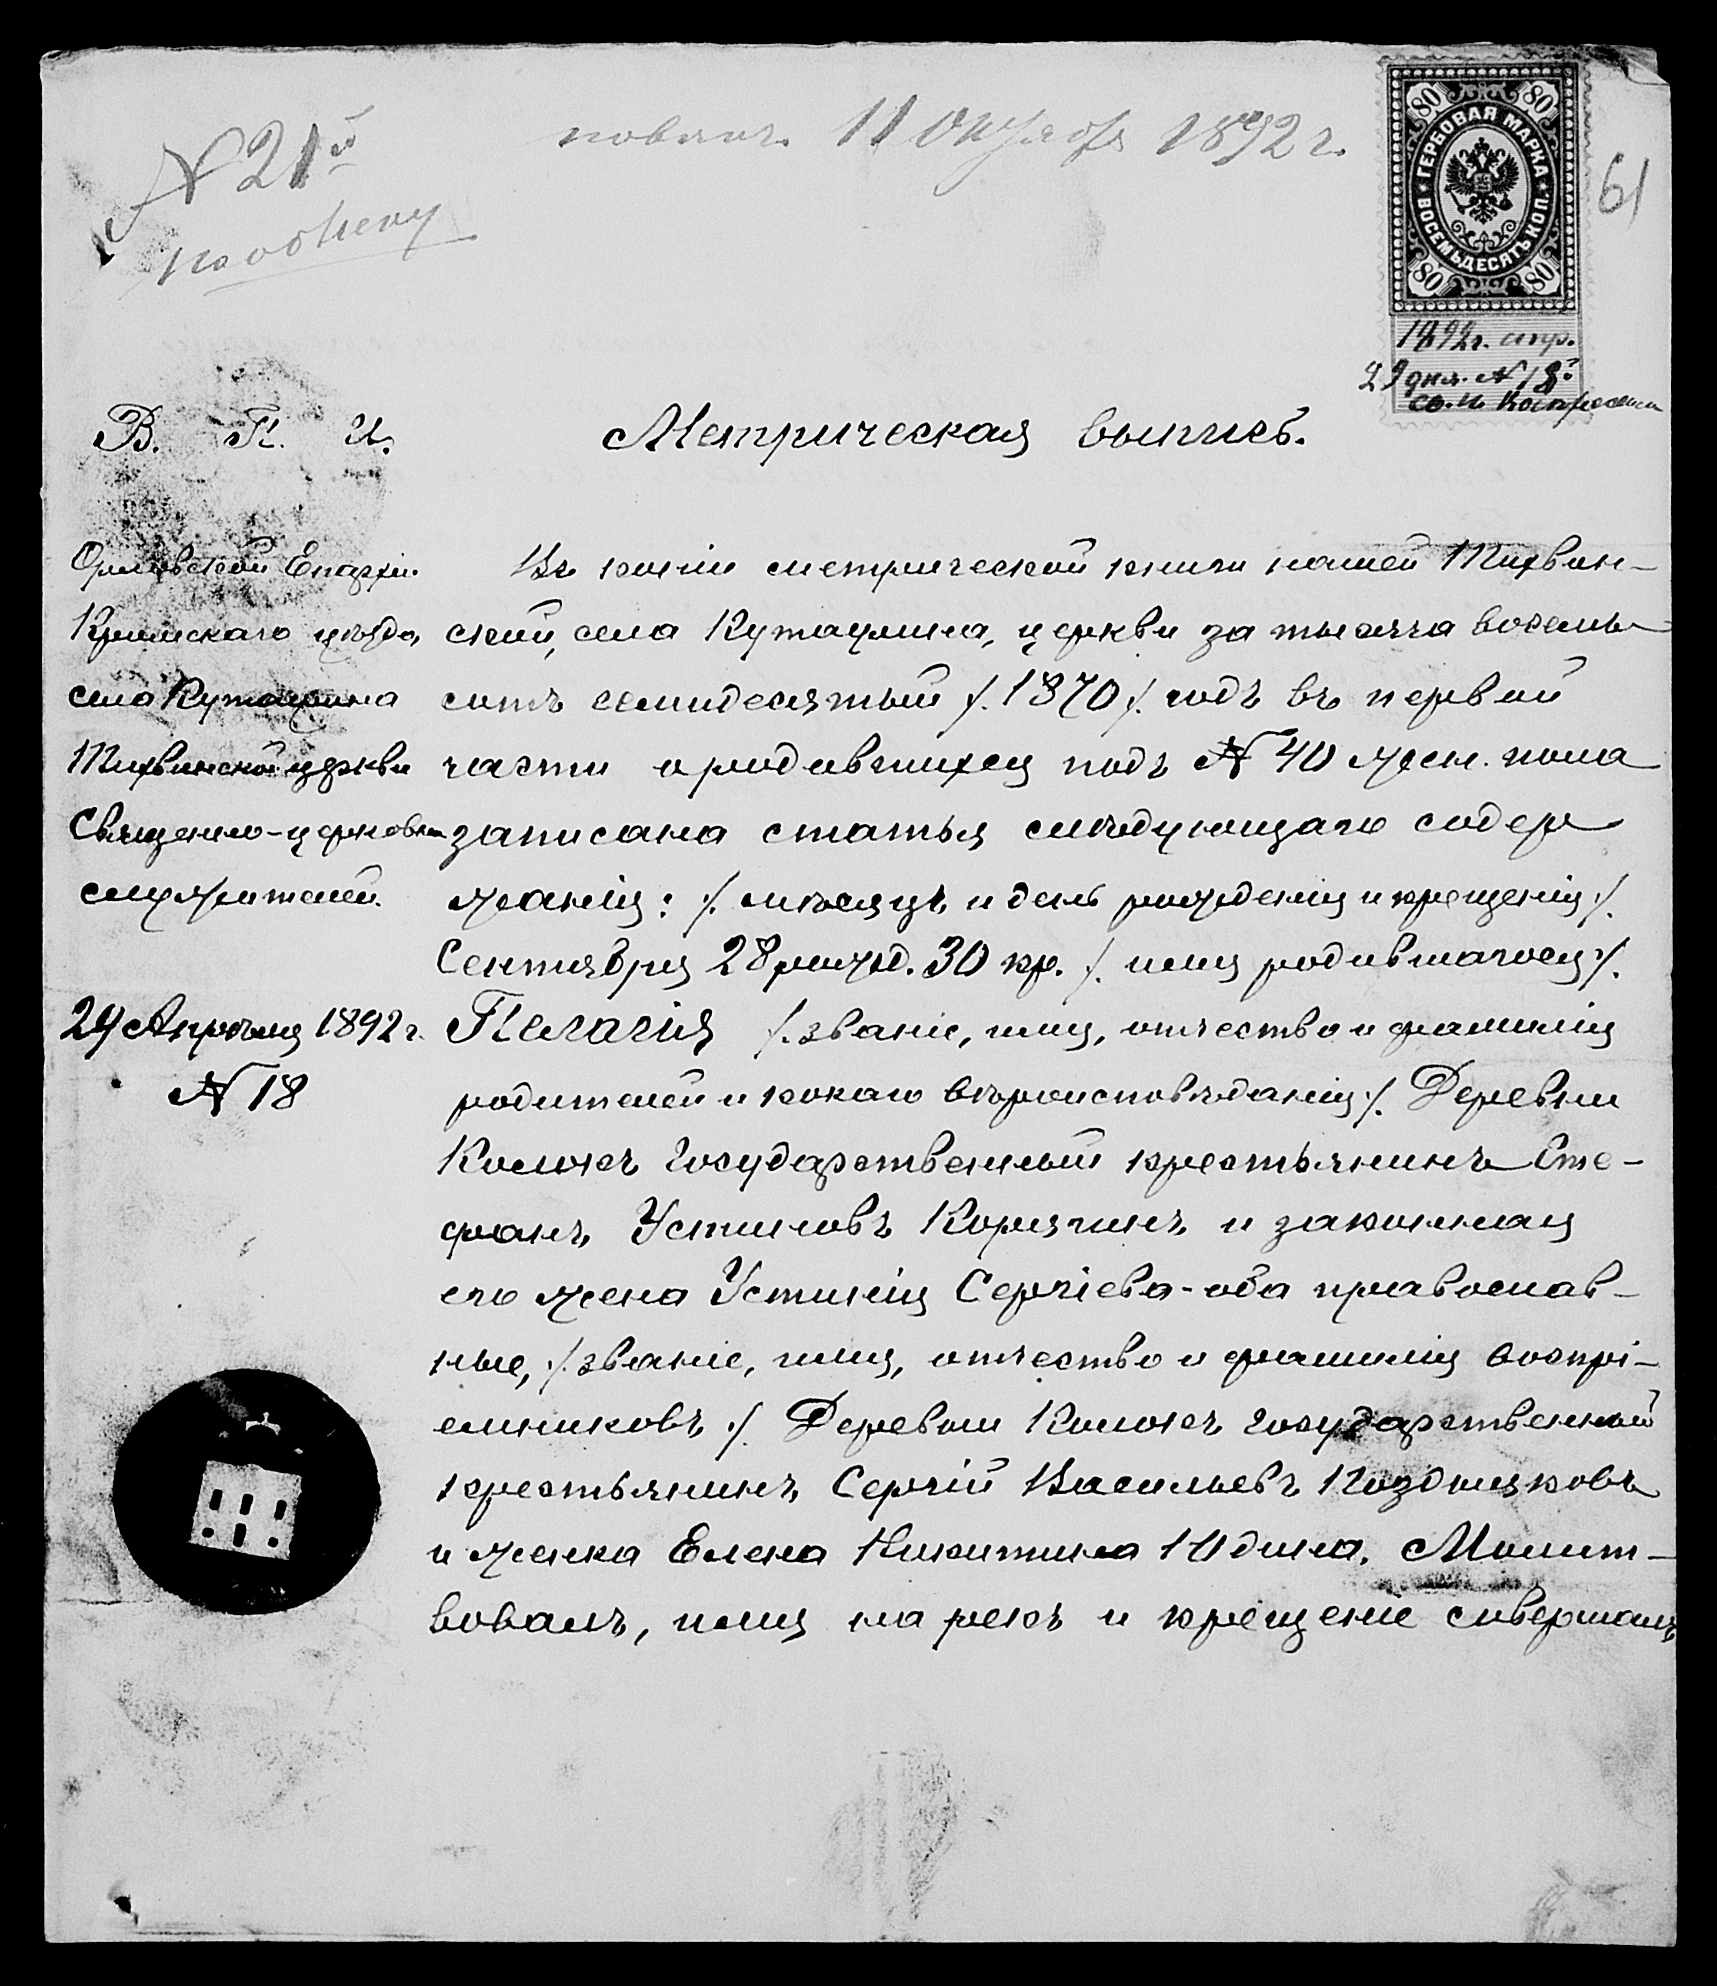 № 21й
повѣнч. 11 Октября 1892 г.
61
ГЕРБОВАЯ МАРКА
ВОСЕМЬДЕСЯТЪ КОП.
80 80 80 80
1892 г. апр.
29 дня. № 18й
В. П. И.
Метрическая выпись.
Орловской Епархіи
Кромскаго уѣзда,
села
Тихвинской церкви
Священно-церковно
служителей.
29 Апрѣля 1892 г.
№ 18
Въ копіи метрической книги нашей Тихвин-
ской, села церкви за тысяча восемь
сотъ семидесятый /.1870/. годъ въ первой
части о родившихся подъ № 40 женск. пола
записана статья слѣдующаго содер
жанія: /. мѣсяцъ и день рожденія и крещенія /.
Сентября 28 рожд. 30 кр. /. имя родившагося /.
Пелагія /. званіе, имя, отчество и фамилія
родителей и какаго вѣроисповѣданія /. Деревни
Колокъ государственный крестьянинъ Сте-
фанъ Устиновъ Корягинъ и законная
его жена Устинія Сергіева - оба православ-
ные, /. званіе, имя, отчество и фамилія воспрі-
емниковъ /. Деревни Колокъ государственный
крестьянинъ Сергій Васильевъ Поздняковъ
и женка Елена Никитина Юдина. Молит-
вовалъ, имя нарекъ и крещеніе совершалъ